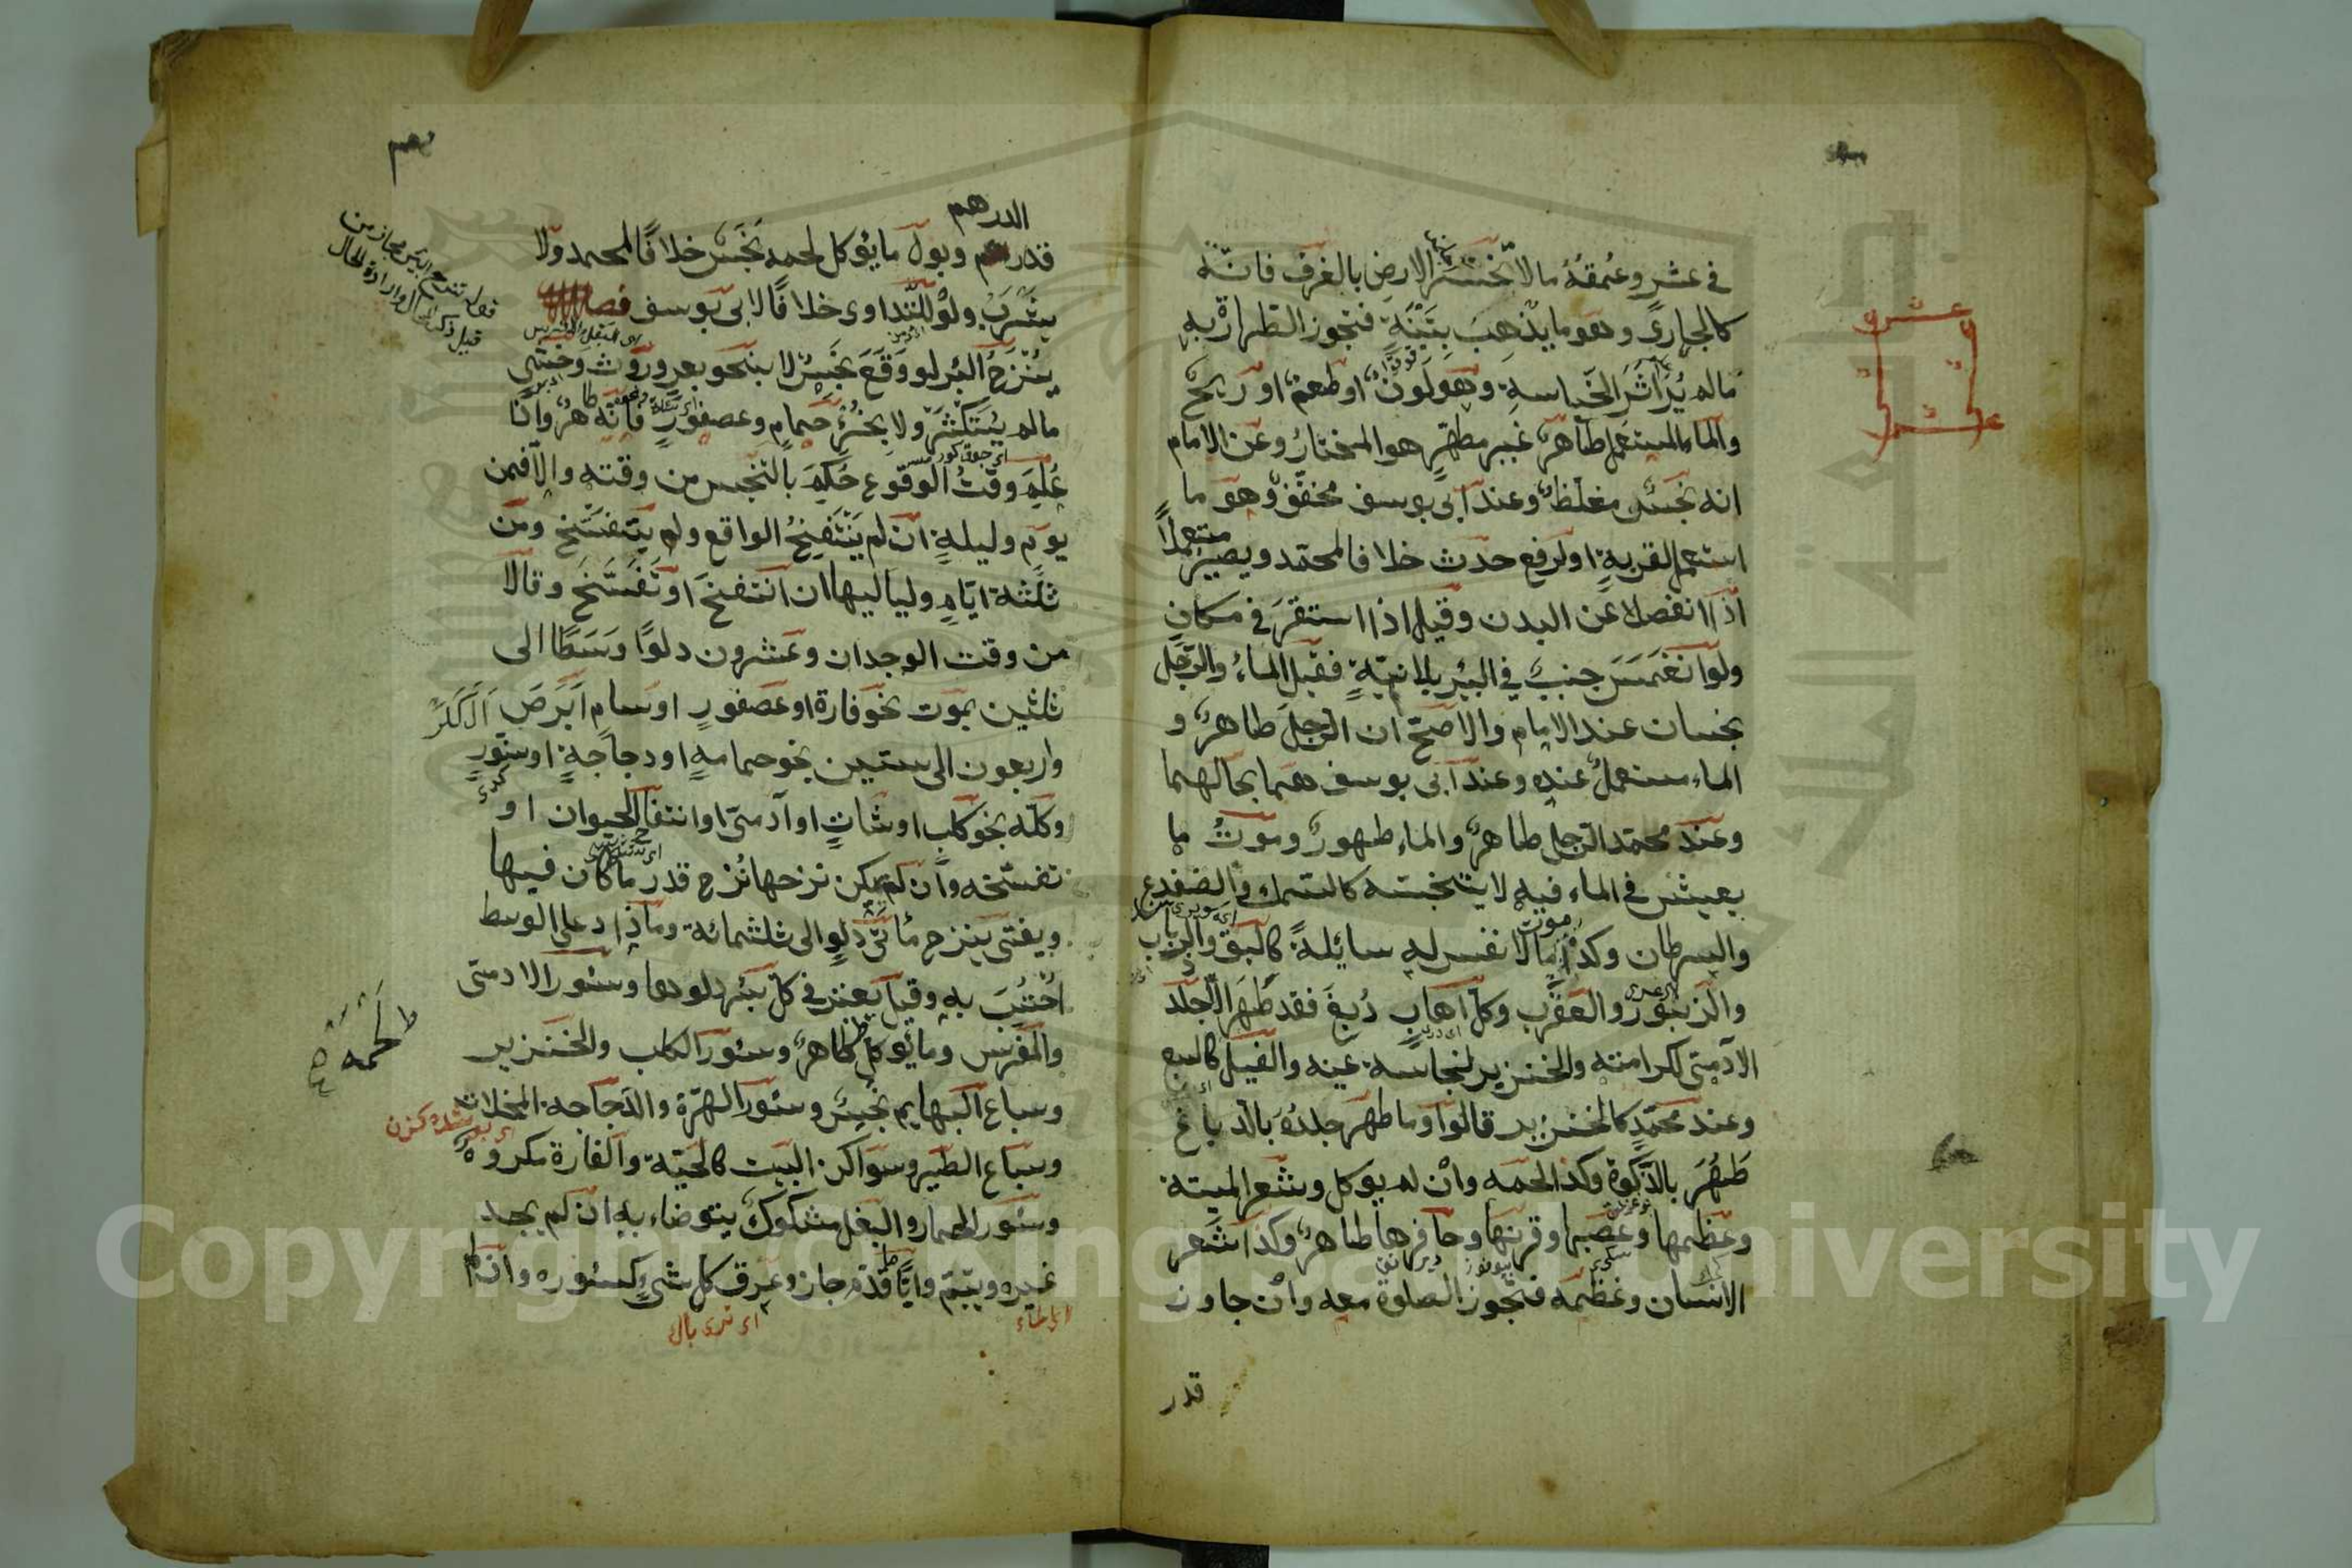 في عشر وعمقه ما لا تنحسر الارض بالغرف فانه
كالجاري وهو ما يذهب بتبنة فتجوز الطهارة به
ما لم ير اثر النجاسة وهو لون او طعم او ريح
والماء المستعمل طاهر غير مطهر هو المختار وعن الامام
انه نجس مغلظ وعند ابي يوسف مخفف وهو ما
استعمل لقربة او لرفع حدث خلافا لمحمد ويصير مستعملا
اذا انفصل عن البدن وقيل اذا استقر في مكان
ولو انغمس جنب في البئر بلا نية فقيل الماء والرجل
نجسان عند الامام والاصح ان الرجل طاهر و
الماء مستعمل عنده وعند ابي يوسف هما بحالهما
وعند محمد الرجل طاهر والماء طهور وموت ما
يعيش في الماء فيه لا ينجسه كالسمك والضفدع
والسرطان وكذا موت ما لا نفس له سائلة كالبق والذباب
والزنبور والعقرب وكل اهاب دبغ فقد طهر الا جلد
الآدمي لكرامته والخنزير لنجاسة عينه والفيل كالسبع
وعند محمد كالخنزير قالوا وما طهر جلده بالدباغ
طهر بالذكوة وكذا لحمه وان لم يوكل وشعر الميتة
وعظمها وعصبها وقرنها وحافرها طاهر وكذا شعر
الانسان وعظمه فتجوز الصلوة معه وان جاوز
قدر
عشر
عشر
الدرهم
قدر وبول ما يؤكل لحمه نجس خلافا لمحمد ولا
يشرب ولو للتداوي خلافا لابي يوسف فصل
ينزح البئر لو وقع نجس لا بنحو بعر وروث وخثي
ما لم يستكثر ولا بخرء حمام وعصفور فانه طاهر واذا
علم وقت الوقوع حكم بالتنجس من وقته والا فمن
يوم وليلة ان لم ينتفخ الواقع ولم يتفسخ ومن
ثلثة ايام ولياليها ان انتفخ او تفسخ وقالا
من وقت الوجدان وعشرون دلوا وسطا الى
ثلثين بموت نحو فارة او عصفور او سام ابرص
واربعون الى ستين بنحو حمامة او دجاجة او سنور
وكله بنحو كلب او شات او آدمي او انتفاخ الحيوان او
تفسخه وان لم يمكن نزحها نزح قدر ما كان فيها
ويفتى بنزح مأتي دلو الى ثلثمائة وما زاد على الوسط
احتسب به وقيل يعتبر في كل بئر دلوها وسئور الادمي
والفرس وما يؤكل طاهر وسئور الكلب والخنزير
وسباع البهايم نجس وسئور الهرة والدجاجة المخلات
وسباع الطير وسواكن البيت كالحية والفارة مكروه
وسئور الحمار والبغل مشكوك يتوضاء به ان لم يجد
غيره ويتيم وايا قدم جاز وعرق كل شي كسئوره وان لم
لحمه
Copyright © King Saud University